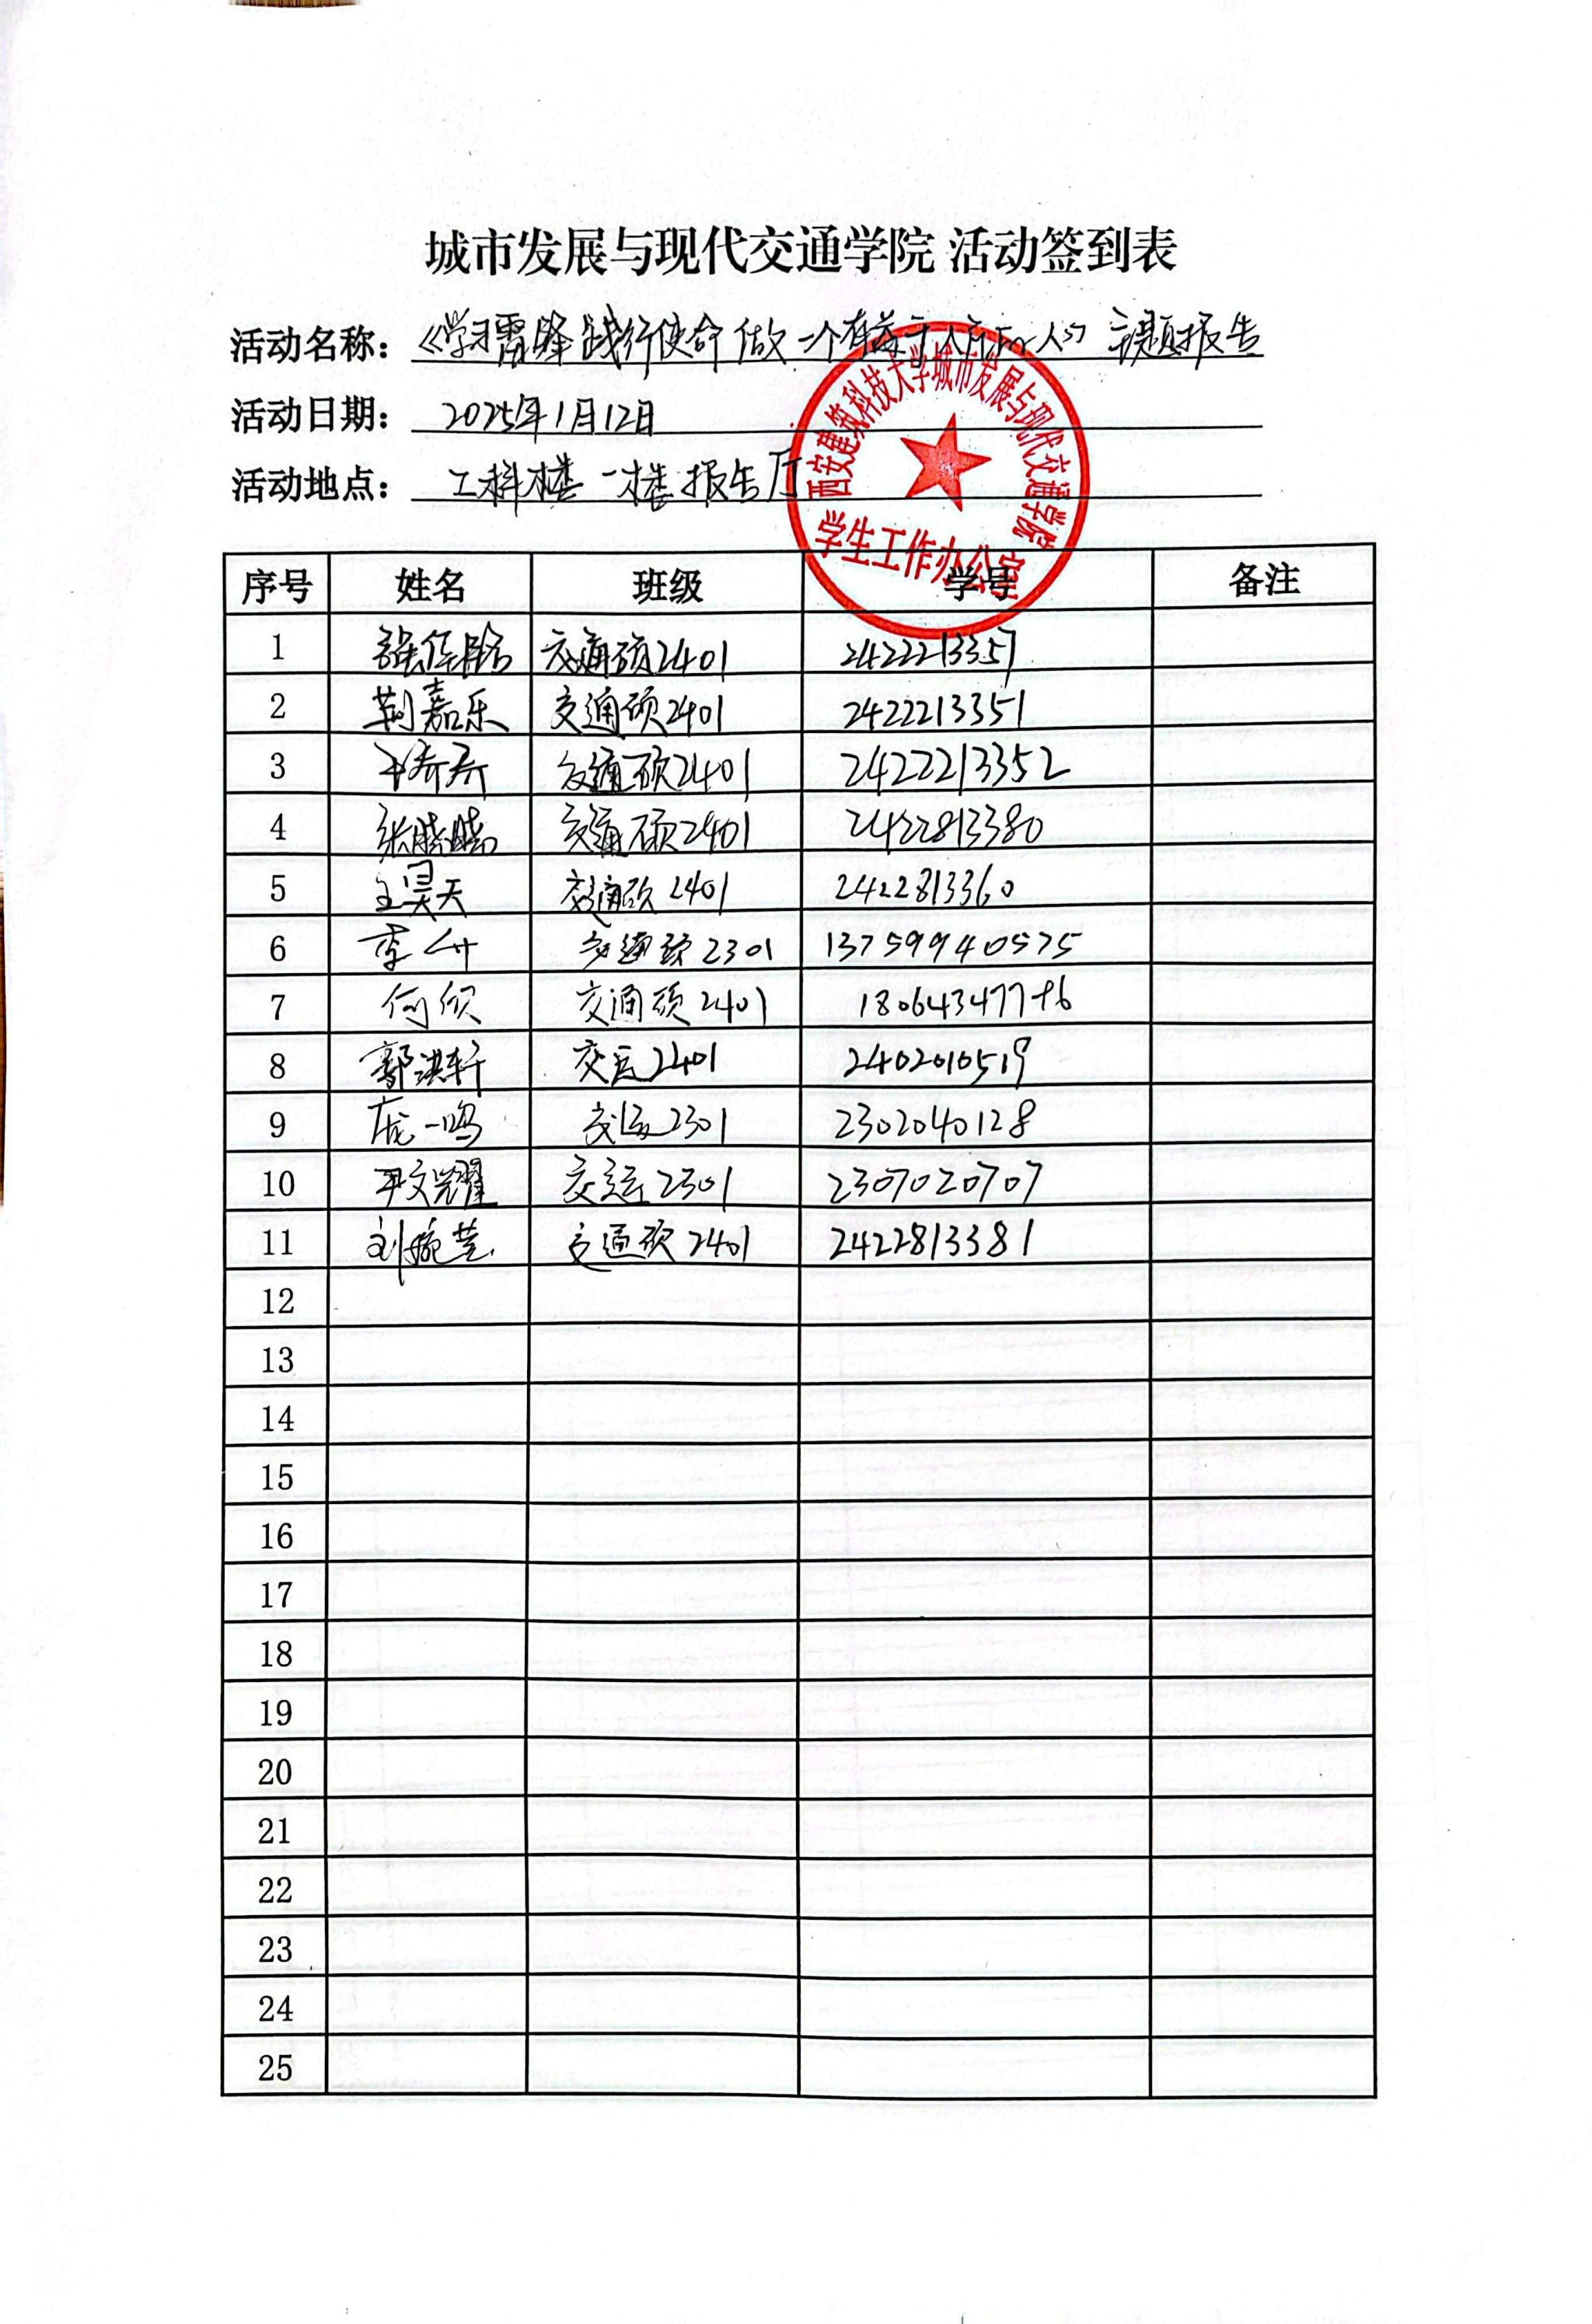 城市发展与现代交通学院 活动签到表
活动名称：《学习雷锋 践行使命 做一个有益于人民的人》主题报告
活动日期：2025年1月12日
活动地点：工科楼一楼报告厅
西安建筑科技大学城市发展与现代交通学院
学生工作办公室
序号 姓名 班级 学号 备注
1 交通硕2401 2422213357
2 荆嘉乐 交通硕2401 2422213351
3 乔乔 交通硕2401 2422213352
4 张晓晴 交通硕2401 2422813380
5 王昊天 交通硕2401 2422813360
6 李 交通硕2301 13759940575
7 何欣 交通硕2401
8 郭洪轩 交运2401 2402010519
9 庞一鸣 交运2301 2302040128
10 尹文耀 交运2301 2307020707
11 刘婉莹 交通硕2401 2422813381
12
13
14
15
16
17
18
19
20
21
22
23
24
25